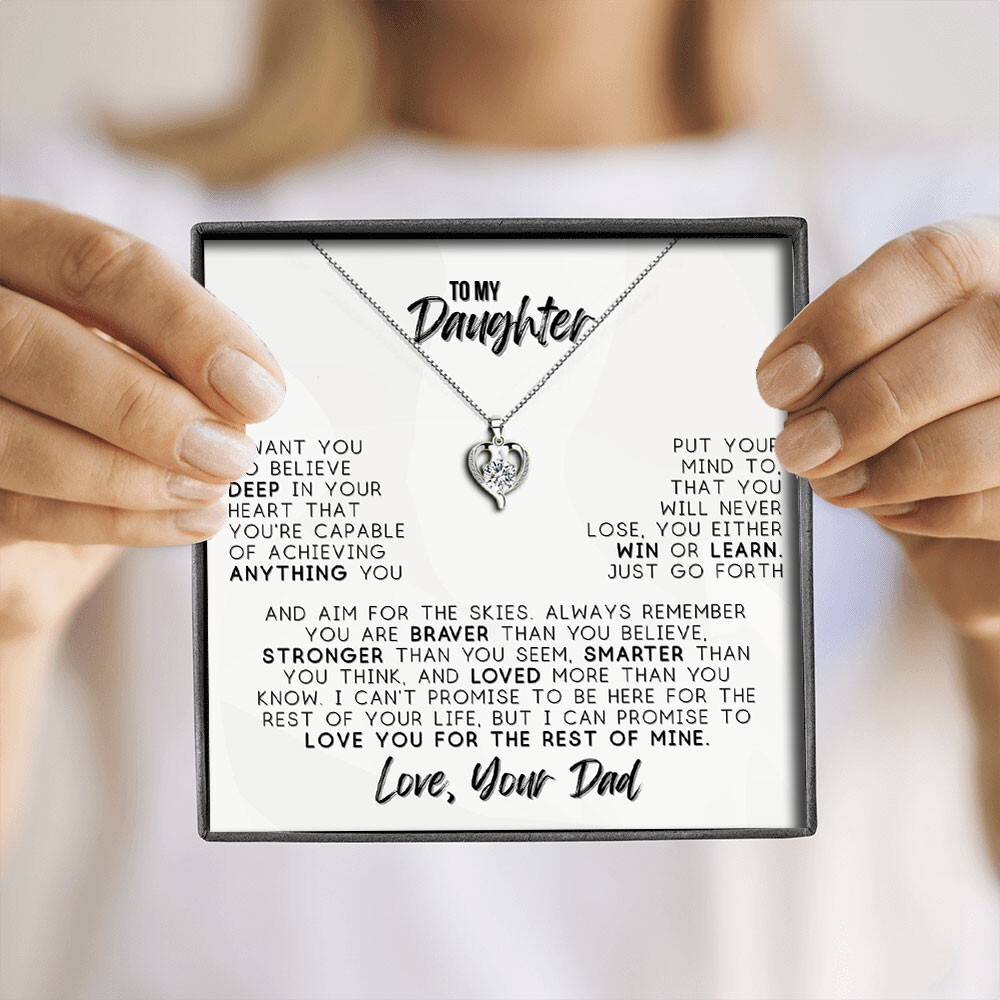 TO MY
Daughter
WANT YOU
BELIEVE
DEEP IN YOUR
HEART THAT
YOU'RE CAPABLE
OF ACHIEVING
ANYTHING YOU
PUT YOUR
MIND TO,
THAT YOU
WILL NEVER
LOSE, YOU EITHER
WIN OR LEARN.
JUST GO FORTH
AND AIM FOR THE SKIES. ALWAYS REMEMBER
YOU ARE BRAVER THAN YOU BELIEVE,
STRONGER THAN YOU SEEM, SMARTER THAN
YOU THINK, AND LOVED MORE THAN YOU
KNOW. I CAN'T PROMISE TO BE HERE FOR THE
REST OF YOUR LIFE, BUT I CAN PROMISE TO
LOVE YOU FOR THE REST OF MINE.
Love, Your Dad